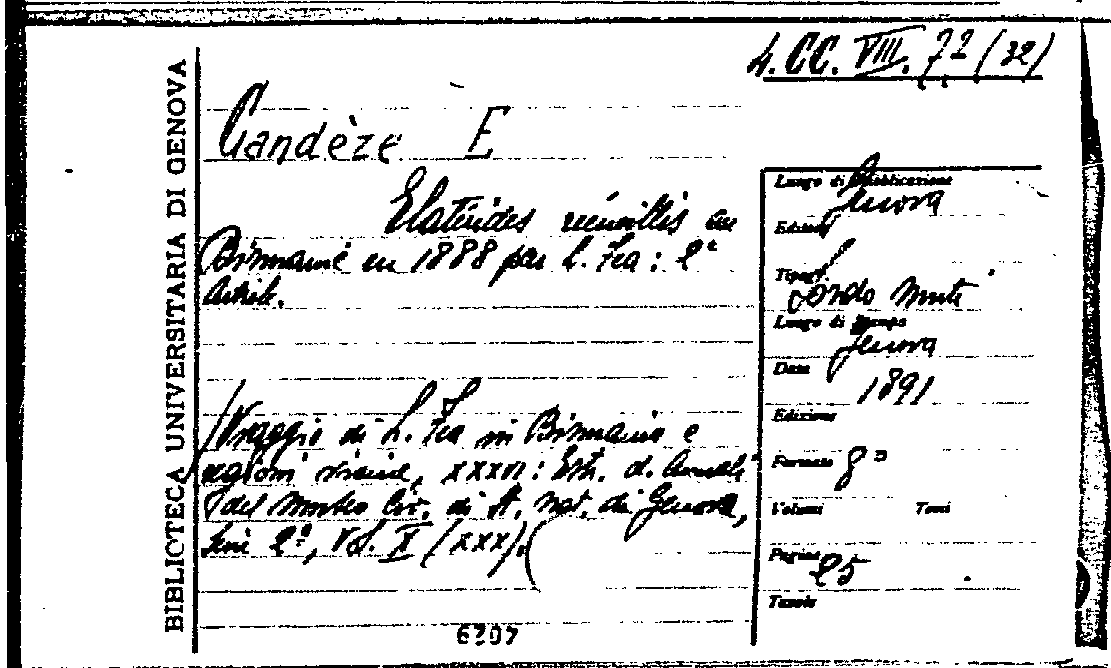 4. CC. VIII. 72 (32)
BIBLIOTECA UNIVERSITARIA DI GENOVA
Candèze E
Elatérides recueillis en
Birmanie en 1888 par L. Fea: 2ª
(Viaggio di L. Fea in Birmania e
regioni vicine, XXXVI: Estr. d. Annali
del Museo Civ. di St. nat. di Genova,
Serie 2ª, Vol. X (XXX).
6207
Luogo di Pubblicazione
Genova
Editore
Tipogr.
Sordo Muti
Luogo di Stampa
Genova
Data
1891
Edizione
Formato 8º
Volumi Tomi
Pagine
25
Tavole